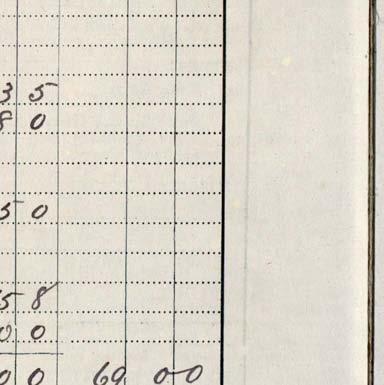 35
80
50
58
00
00 69 00